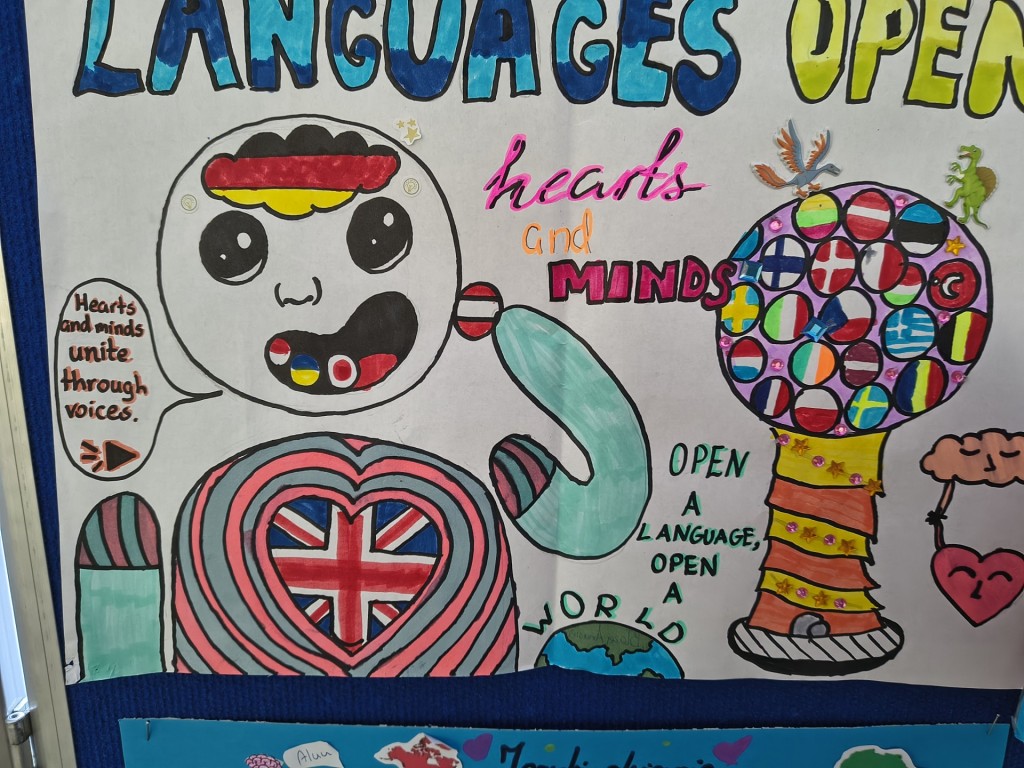 LANGUAGES OPEN
hearts
and
MINDS
Hearts
and minds
unite
through
voices.
OPEN
A
LANGUAGE,
OPEN
A
WORLD